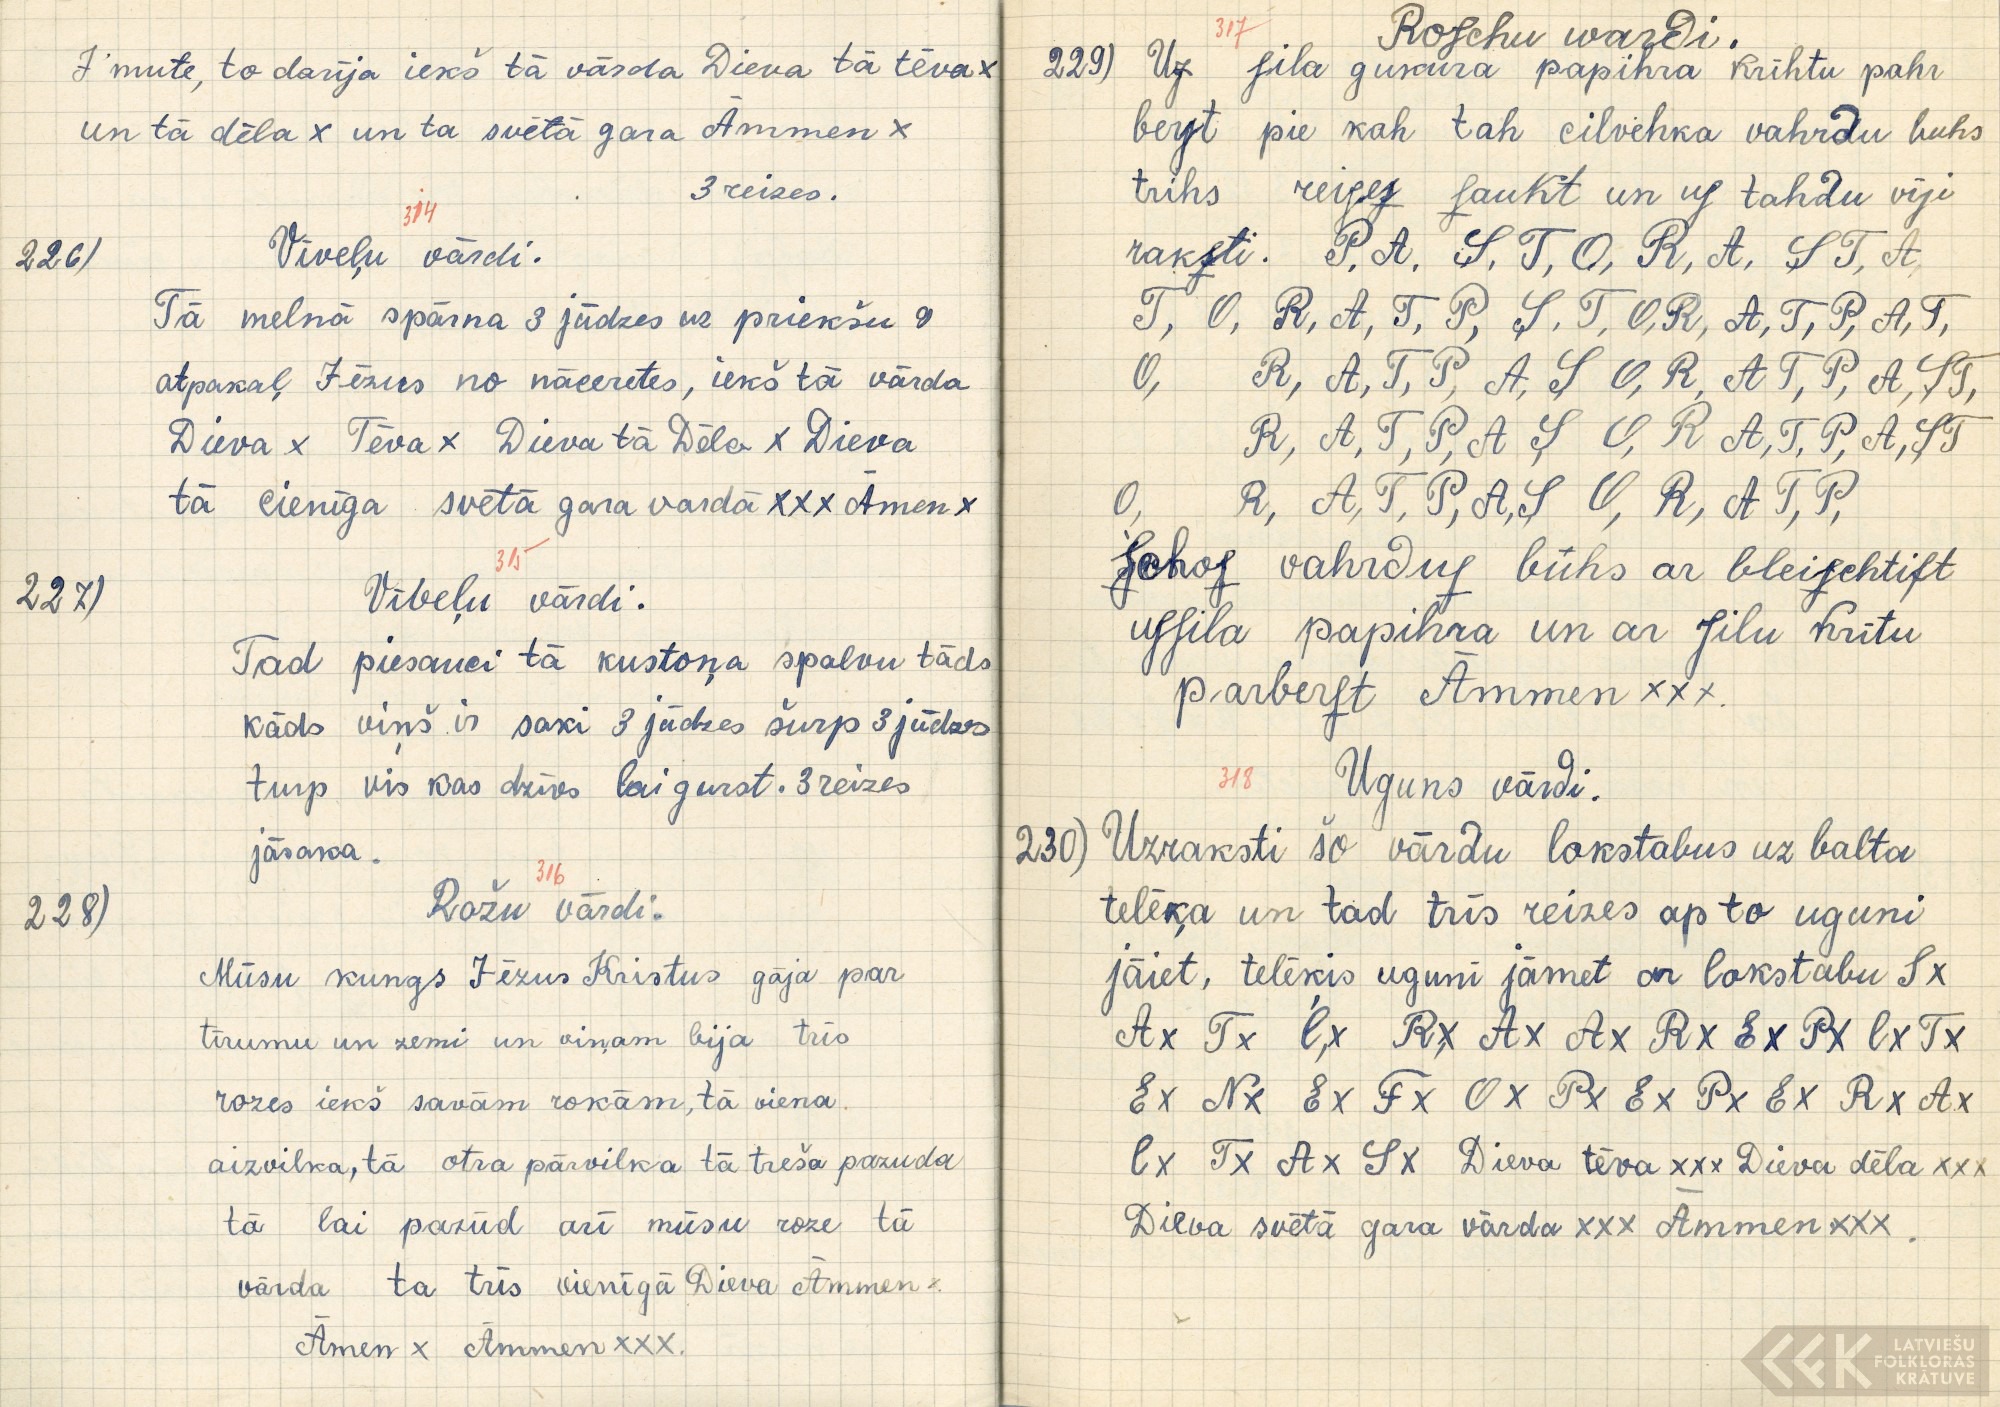 J'mute, to darīja iekš tā vārda Dieva tā tēva x
un tā dēla x un ta svētā gara Āmmen x
3 reizes.
314
226) Vīveļu vārdi.
Tā melnā spārna 3 jūdzes uz priekšu 9
atpakaļ Jēzus no nāceretes, iekš tā vārda
Dieva x Tēva x Dieva tā Dēla x Dieva
tā cienīga svētā gara vardā xxx Āmen x
315
227) Vībeļu vārdi.
Tad piesauci tā kustoņa spalvu tāds
kāds viņš ir saki 3 jūdzes šurp 3 jūdzes
turp vis kas dzīvs lai gurst. 3 reizes
jāsaka.
316
228) Rožu vārdi.
Mūsu kungs Jēzus Kristus gāja par
tīrumu un zemi un viņam bija trīs
rozes iekš savām rokām, tā viena
aizvilka, tā otra pārvilka tā treša pazuda
tā lai pazūd arī mūsu roze tā
vārda ta trīs vienīgā Dieva Āmmen x
Āmen x Āmmen xxx.
317 Roſchu wardi.
229) Uz ſila gukura papihra krīhtu pahr
berſt pie kah tah cilvehka vahrdu buhs
trihs reiſeſ ſaukt un uſ tahdu vīji
rakſti. P, A, S, T, O, R, A, S T, A,
T, O, R, A, T, P, S, T, O, R, A, T, P, A, T,
O, R, A, T, P, A, S O, R, A T, P, A, S T,
R, A, T, P, A S O, R A, T, P, A, S T
O, R, A, T, P, A, S O, R, A T, P,
ſchoſ vahrduſ būhs ar bleiſchtift
uſſila papihra un ar ſilu krītu
parberſt Āmmen xxx.
318 Uguns vārdi.
230) Uzraksti šo vārdu lokstabus uz balta
telēķa un tad trīs reizes ap to uguni
jāiet, telēkis ugunī jāmet ar lokstabu S x
A x T x O x R x A x A x R x E x P x O x T x
E x N x E x F x O x P x E x P x E x R x A x
O x T x A x S x Dieva tēva xxx Dieva dēla xxx
Dieva svētā gara vārda xxx Āmmen xxx.
LATVIEŠU
FOLKLORAS
KRĀTUVE